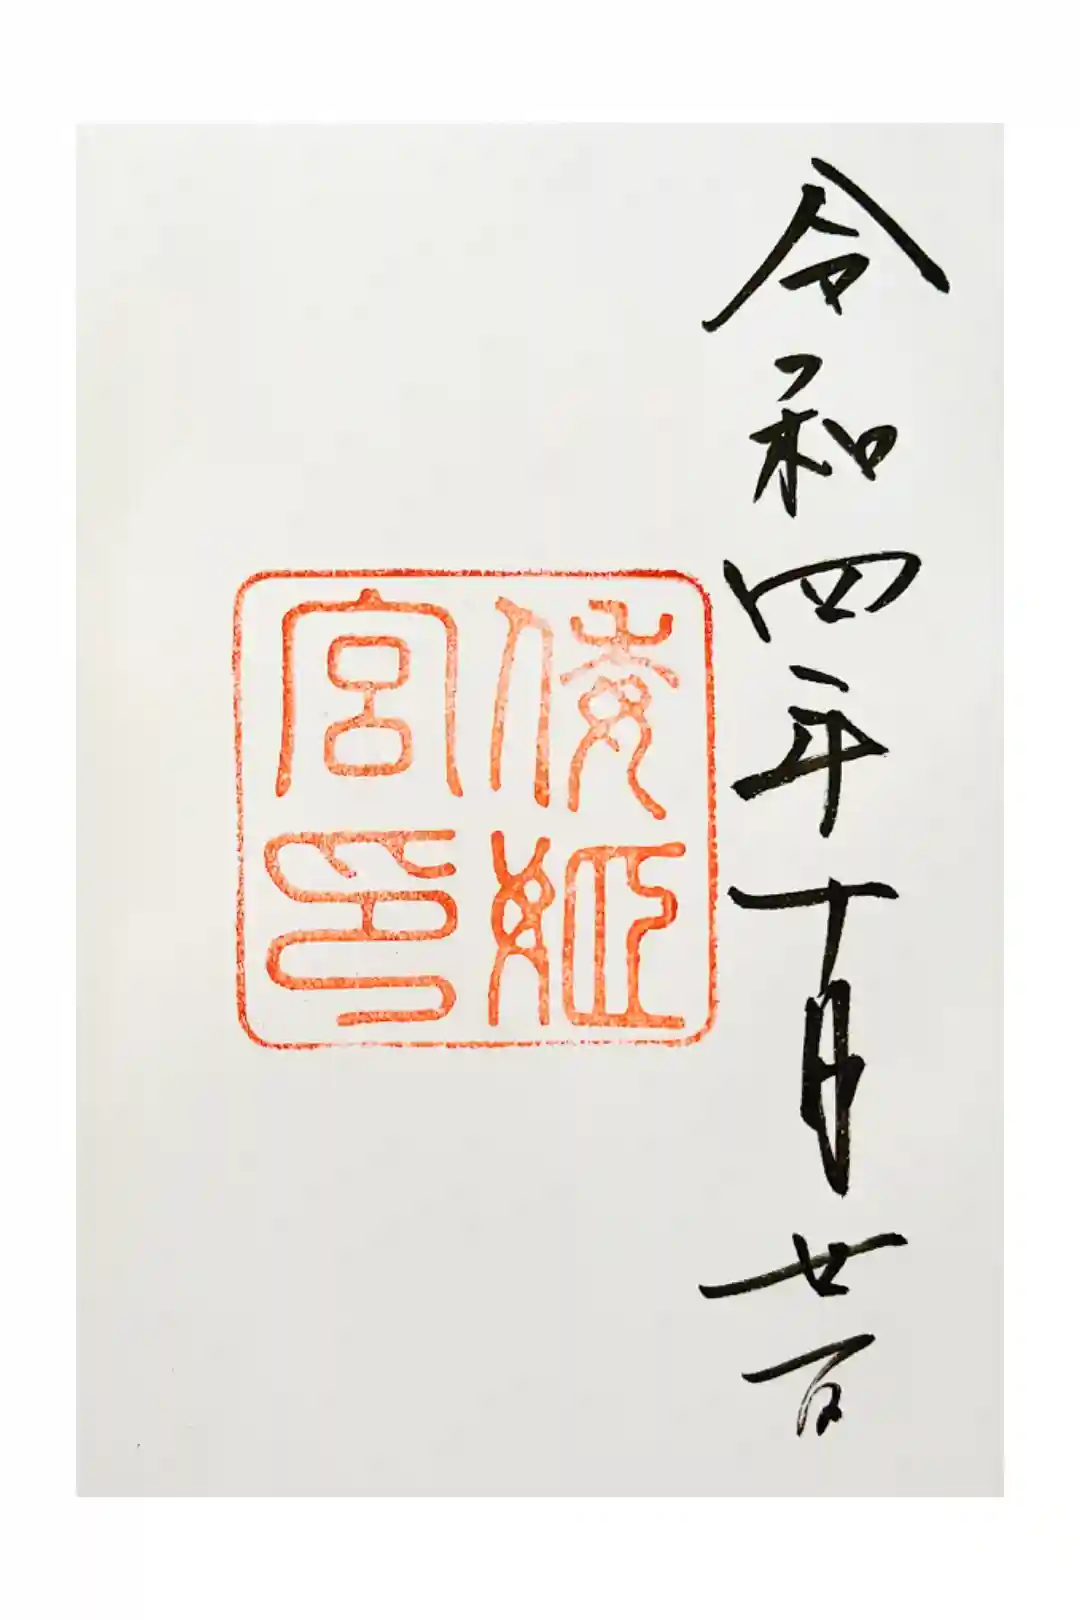 令和四年十月廿一日
倭姫
宮印